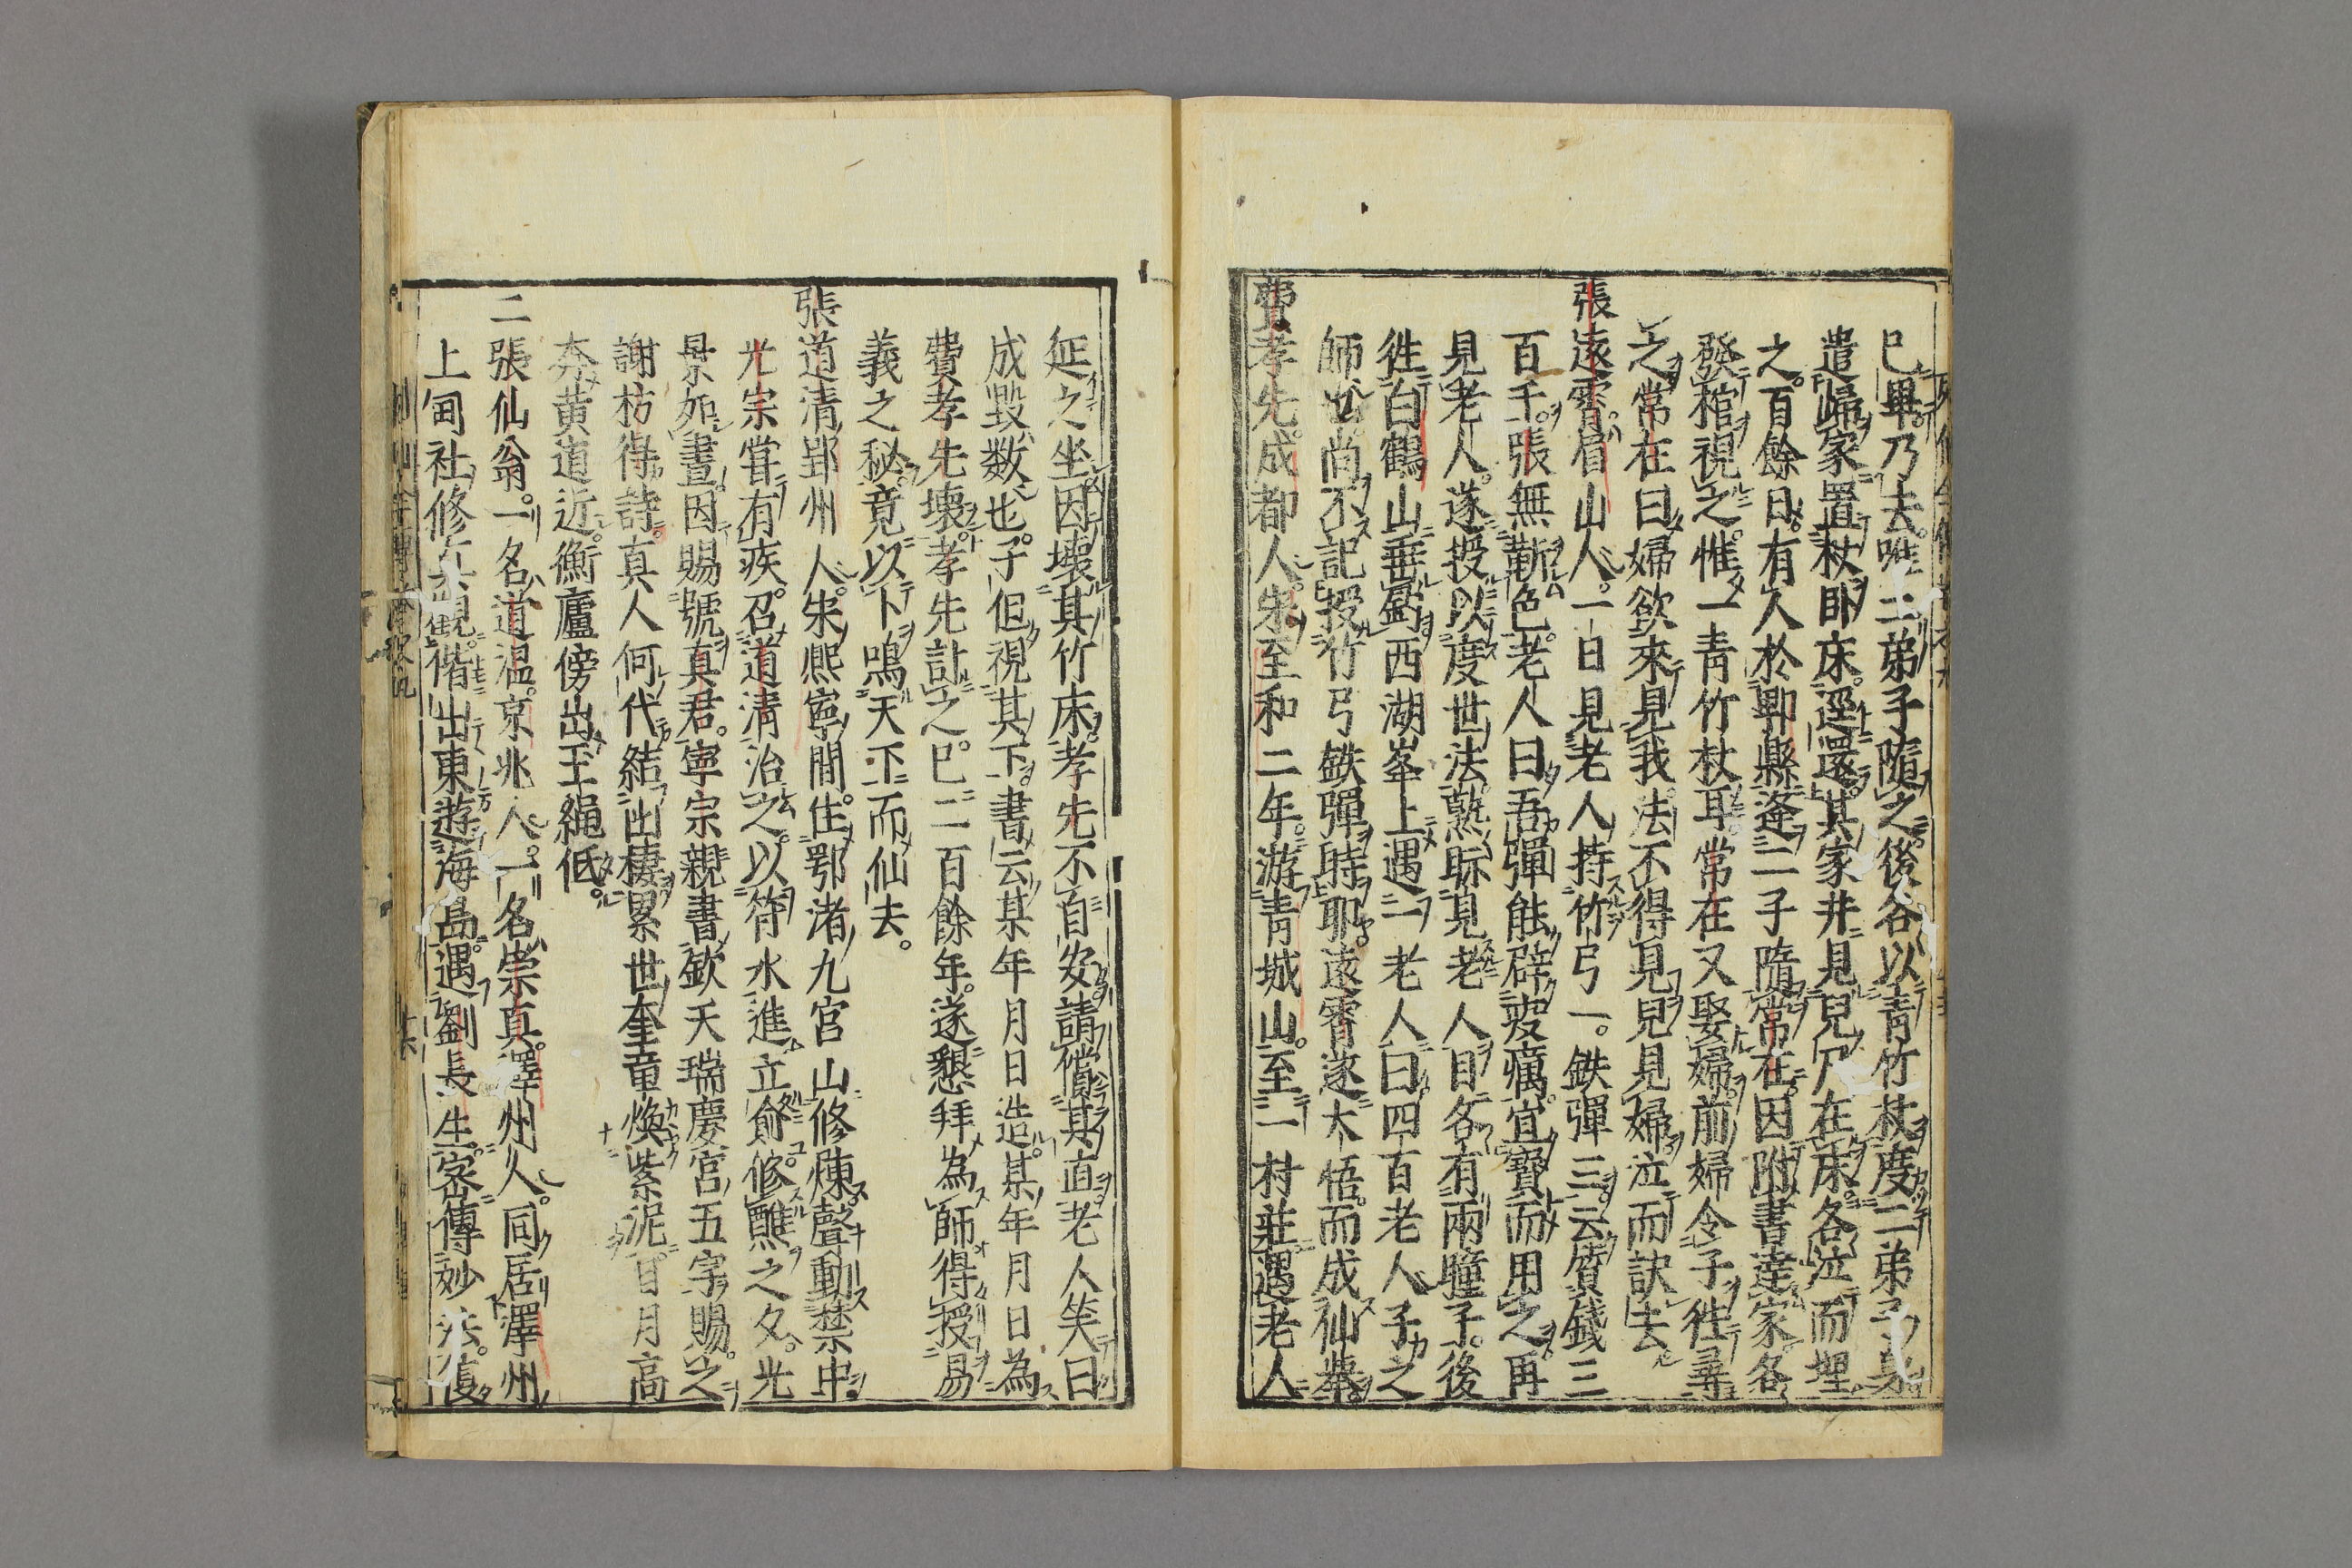 已畢乃去唯二弟子隨之後各以靑竹杖度二弟子
遣歸家置杖卧床逕還其家幷見兒尸在床各泣而埋
之百餘日有人於郫縣逢二子隨常在因附書達家各
發棺視之惟一靑竹杖耳常在又娶婦前婦令子徃尋
之常在曰婦欲來見我法不得見兒見婦泣而訣去
張遠霄眉山人一日見老人持竹弓一鉄彈三云質錢三
百千張無靳色老人曰吾彈能辟疫癘宜寶而用之再
見老人遂授以度世法熟眎見老人目各有兩瞳子後
徃白鶴山垂釣西湖峯上遇一老人曰四百老人子之
師也尚不記授竹弓鉄彈時耶遠霄遂大悟而成仙
費孝先成都人宋至和二年游靑城山至一村莊遇老人
延之坐因壊其竹床孝先不自安請償其直老人笑曰
成毀数也子但視其下書云某年月日造某年月日為
費孝先壊孝先計之已二百餘年遂懇拜為師得授易
義之秘竟以卜鳴天下而仙去
張道清郢州人宋熙寧間住鄂渚九宮山修煉聲動禁中
光宗甞有疾召道清治之以符水進立愈修醮之夕光
景如晝因賜號真君寧宗親書欽天瑞慶宮五字賜之
謝枋得詩真人何代結山棲累世奎章煥紫泥日月高
奔黄道近衡廬傍出玉繩低
二張仙翁一名道温京兆人一名崇真澤州人同居澤州
上甸社修真觀偕出東遊海島遇劉長生密傳妙法復